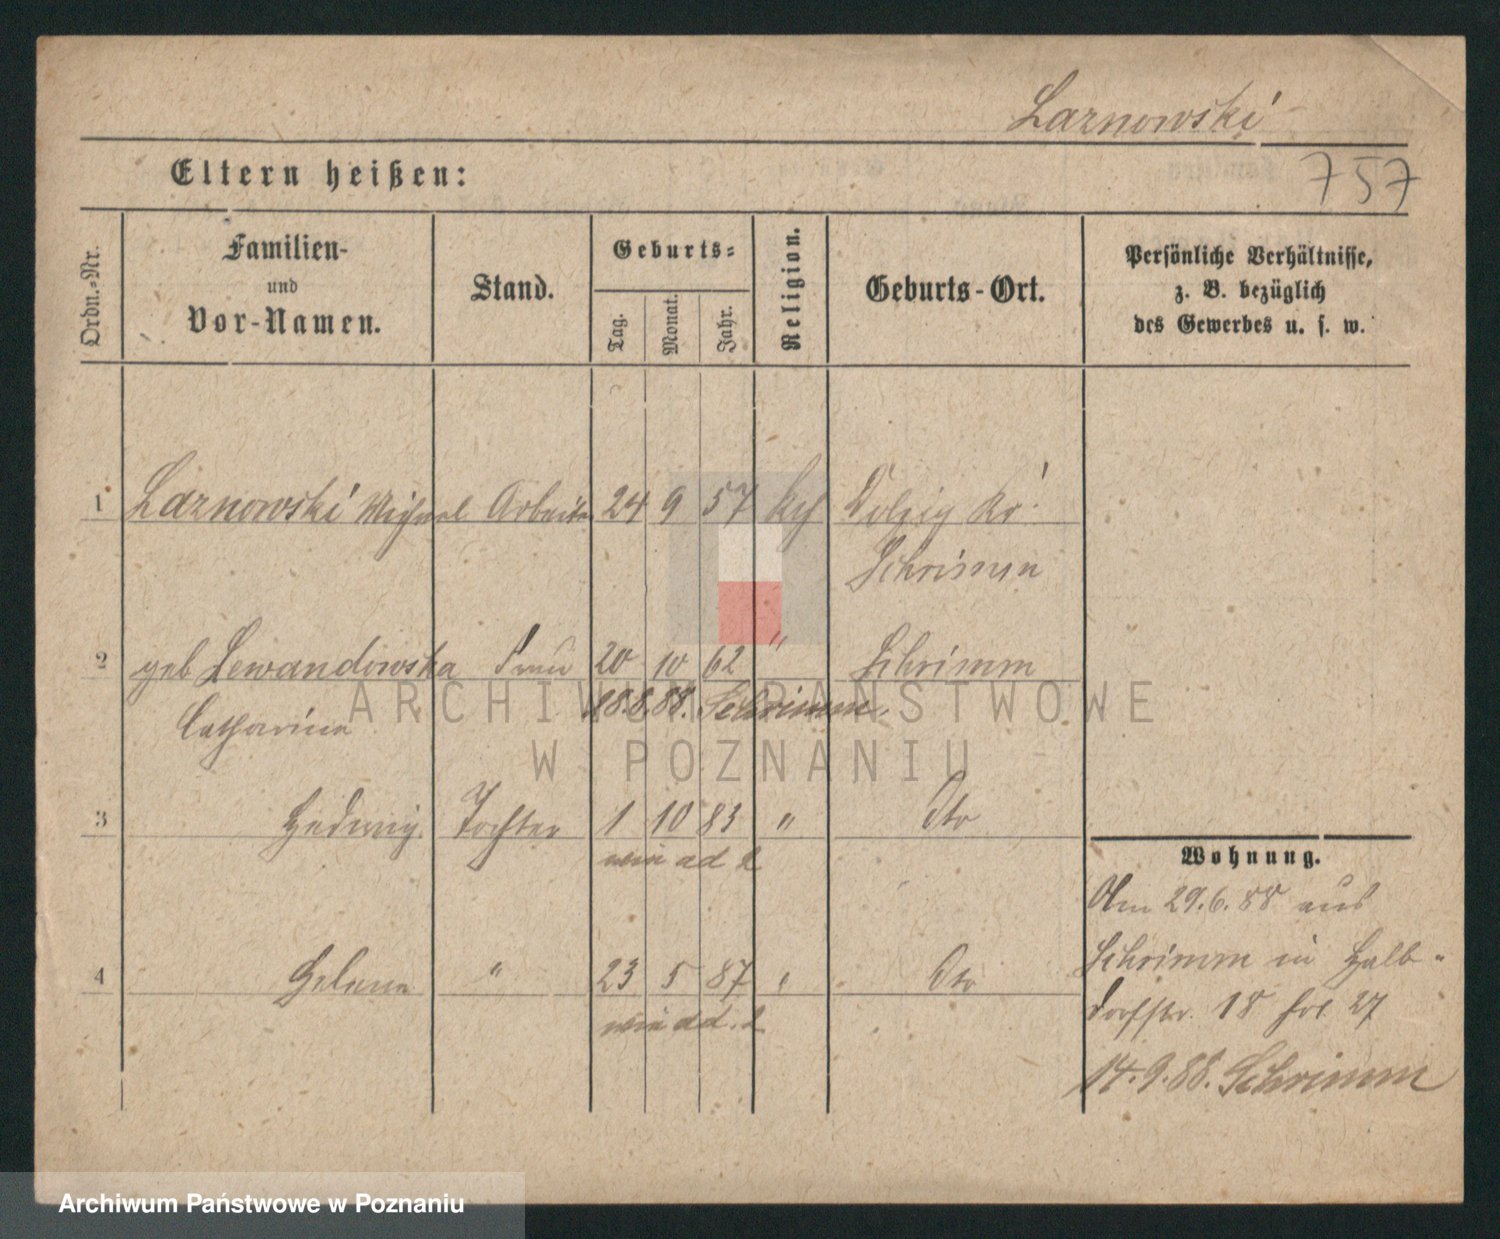 Larnowski
757
Eltern heißen:
Ordn.-Nr.
Familien-
und
Vor-Namen.
Stand.
Geburts-
Tag.
Monat.
Jahr.
Religion.
Geburts-Ort.
Persönliche Verhältnisse,
z. B. bezüglich
des Gewerbes u. s. w.
1 Larnowski Michael Arbeiter 24 9 57 kth Dolzig Kr
Schrimm
2 geb Lewandowska Frau 20 10 62 " Schrimm
Catharina 18.8.88. Schrimm.
3 Hedwig. Tochter 1 10 83 " Dto
ad 2
4 Helena " 23 5 87 " Dto
ad. 2
Wohnung.
Am 29.6.88 aus
Schrimm in Halb-
dorfstr. 18 27
14.9.88. Schrimm
ARCHIWUM PAŃSTWOWE
W POZNANIU
Archiwum Państwowe w Poznaniu